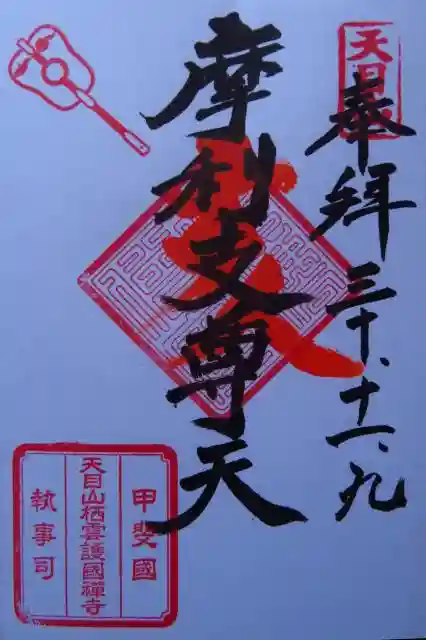 奉拝
三十、十一、九
摩利支尊天
甲斐國
天目山栖雲護國禅寺
執事司